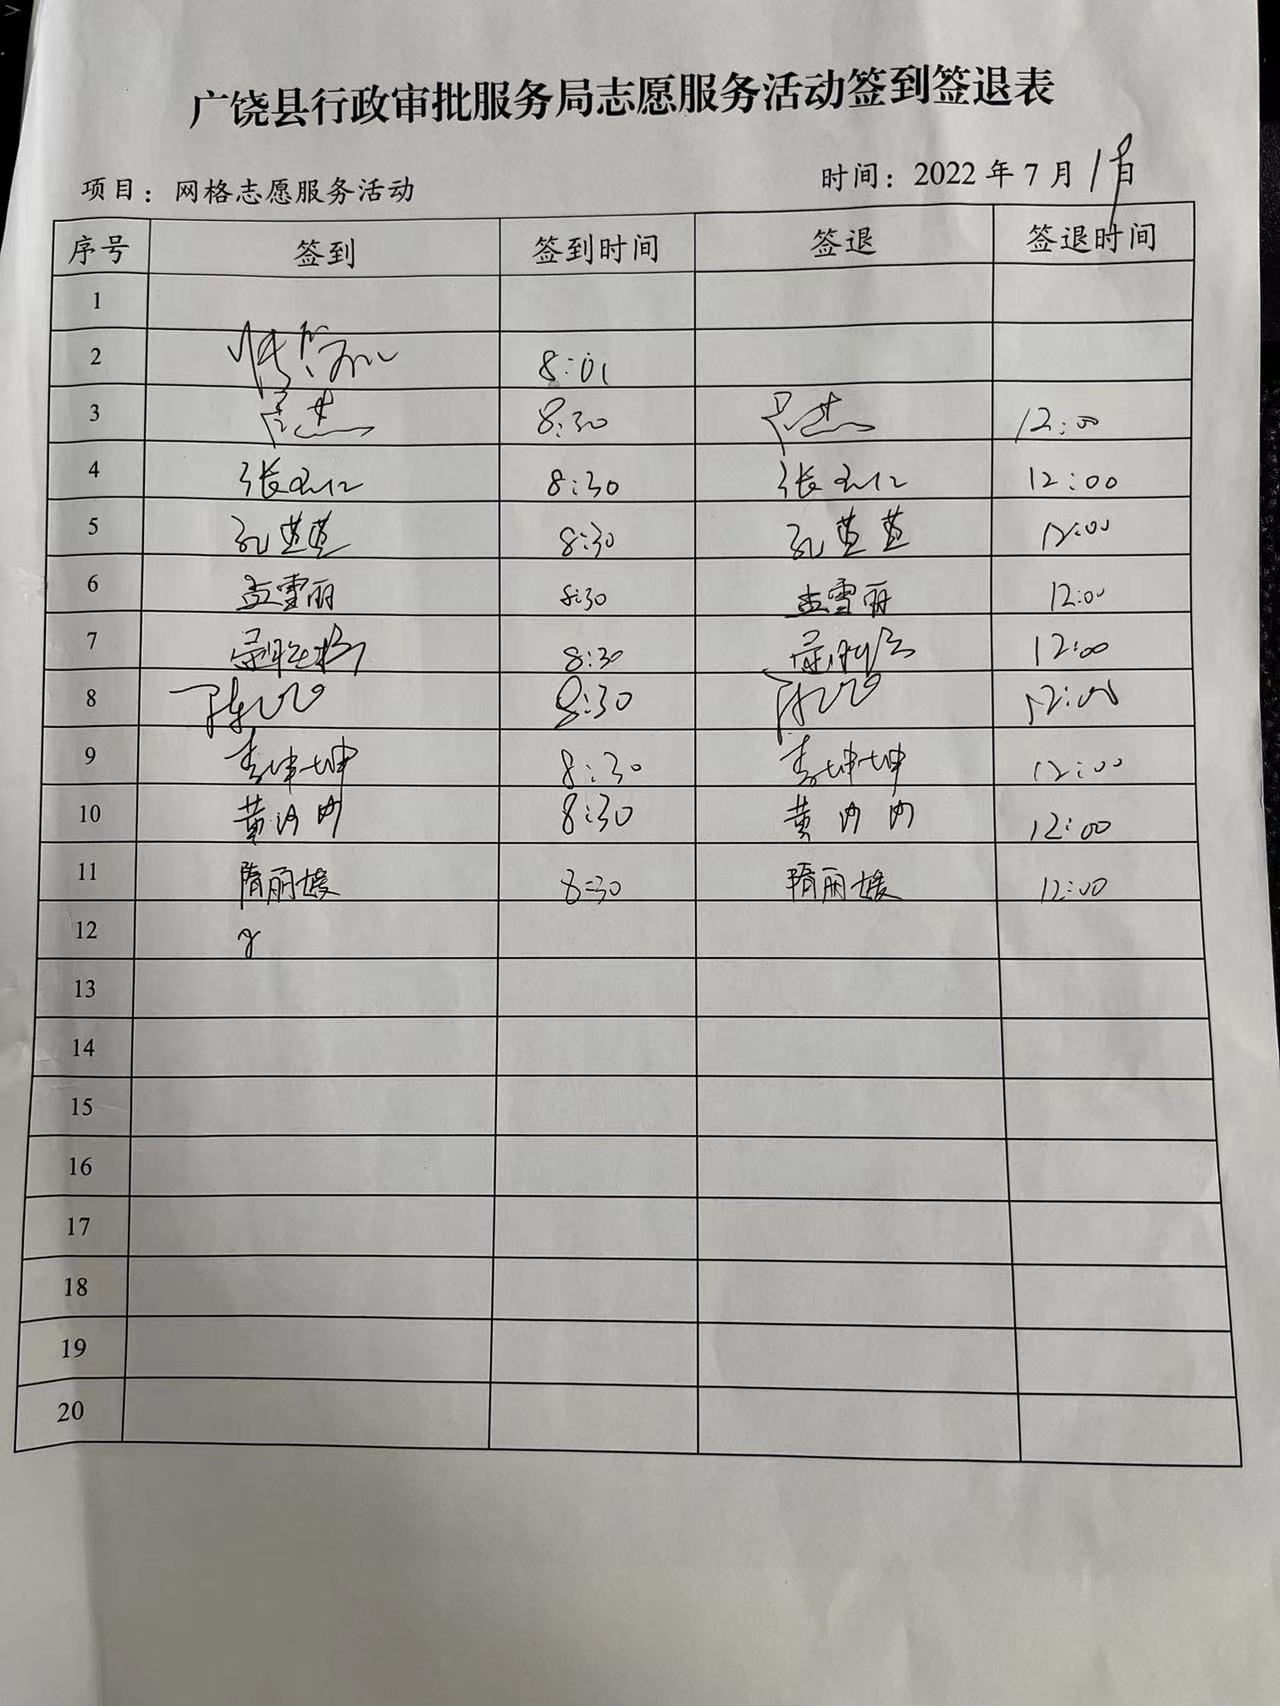 广饶县行政审批服务局志愿服务活动签到签退表
项目：网格志愿服务活动 时间：2022 年 7 月 日
序号 签到 签到时间 签退 签退时间
1
2 8:01
3 8:30 12:00
4 张 8:30 张 12:00
5 孔 8:30 孔 12:00
6 孟雪丽 8:30 孟雪丽 12:00
7 8:30 12:00
8 8:30 12:00
9 李坤坤 8:30 李坤坤 12:00
10 黄 8:30 黄 12:00
11 隋丽媛 8:30 隋丽媛 12:00
12
13
14
15
16
17
18
19
20